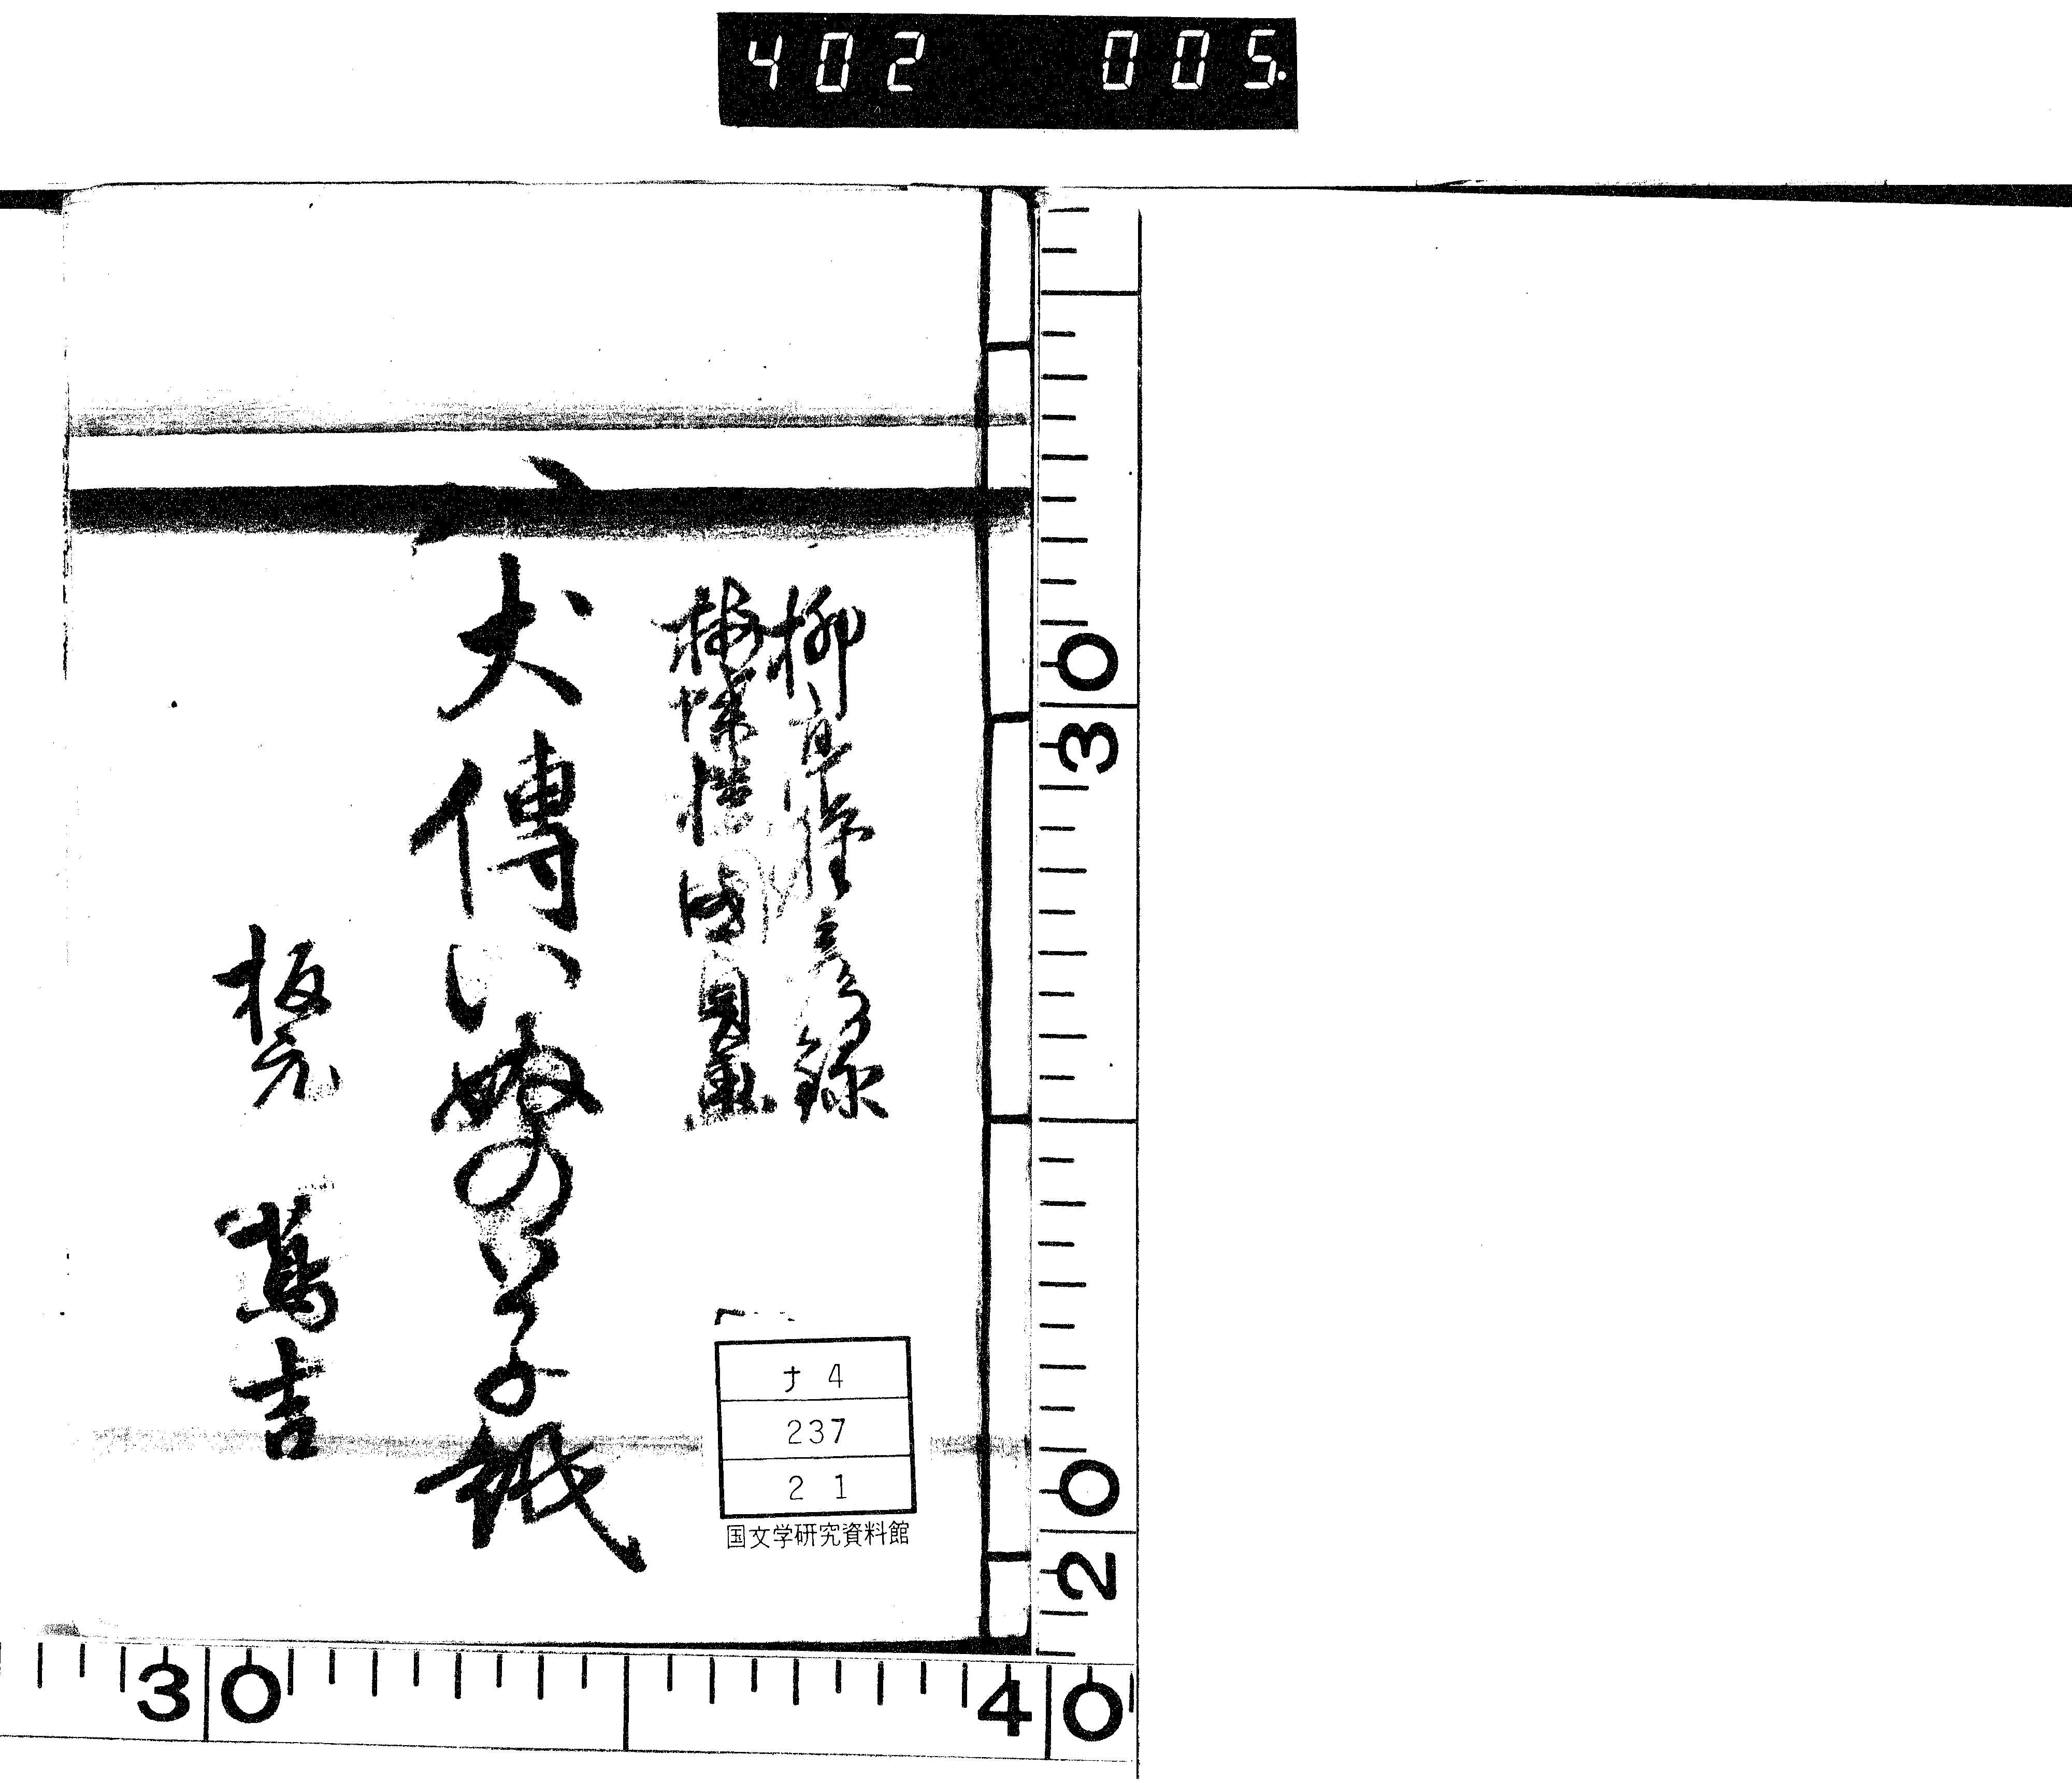 402 005
柳亭種彦録
梅蝶楼国貞画
八犬傳いぬの草紙
板元 蔦吉
ナ4
237
21
国文学研究資料館
30
20
30
40